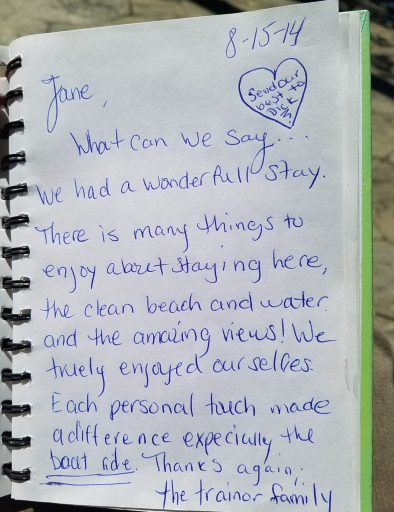 8-15-14
Send our
best to
Dick
Jane,
What can we say...
We had a wonderfull stay.
There is many things to
enjoy about staying here,
the clean beach and water
and the amazing views! We
truely enjoyed ourselves.
Each personal touch made
a difference expecially the
boat ride. Thanks again,
the trainor family